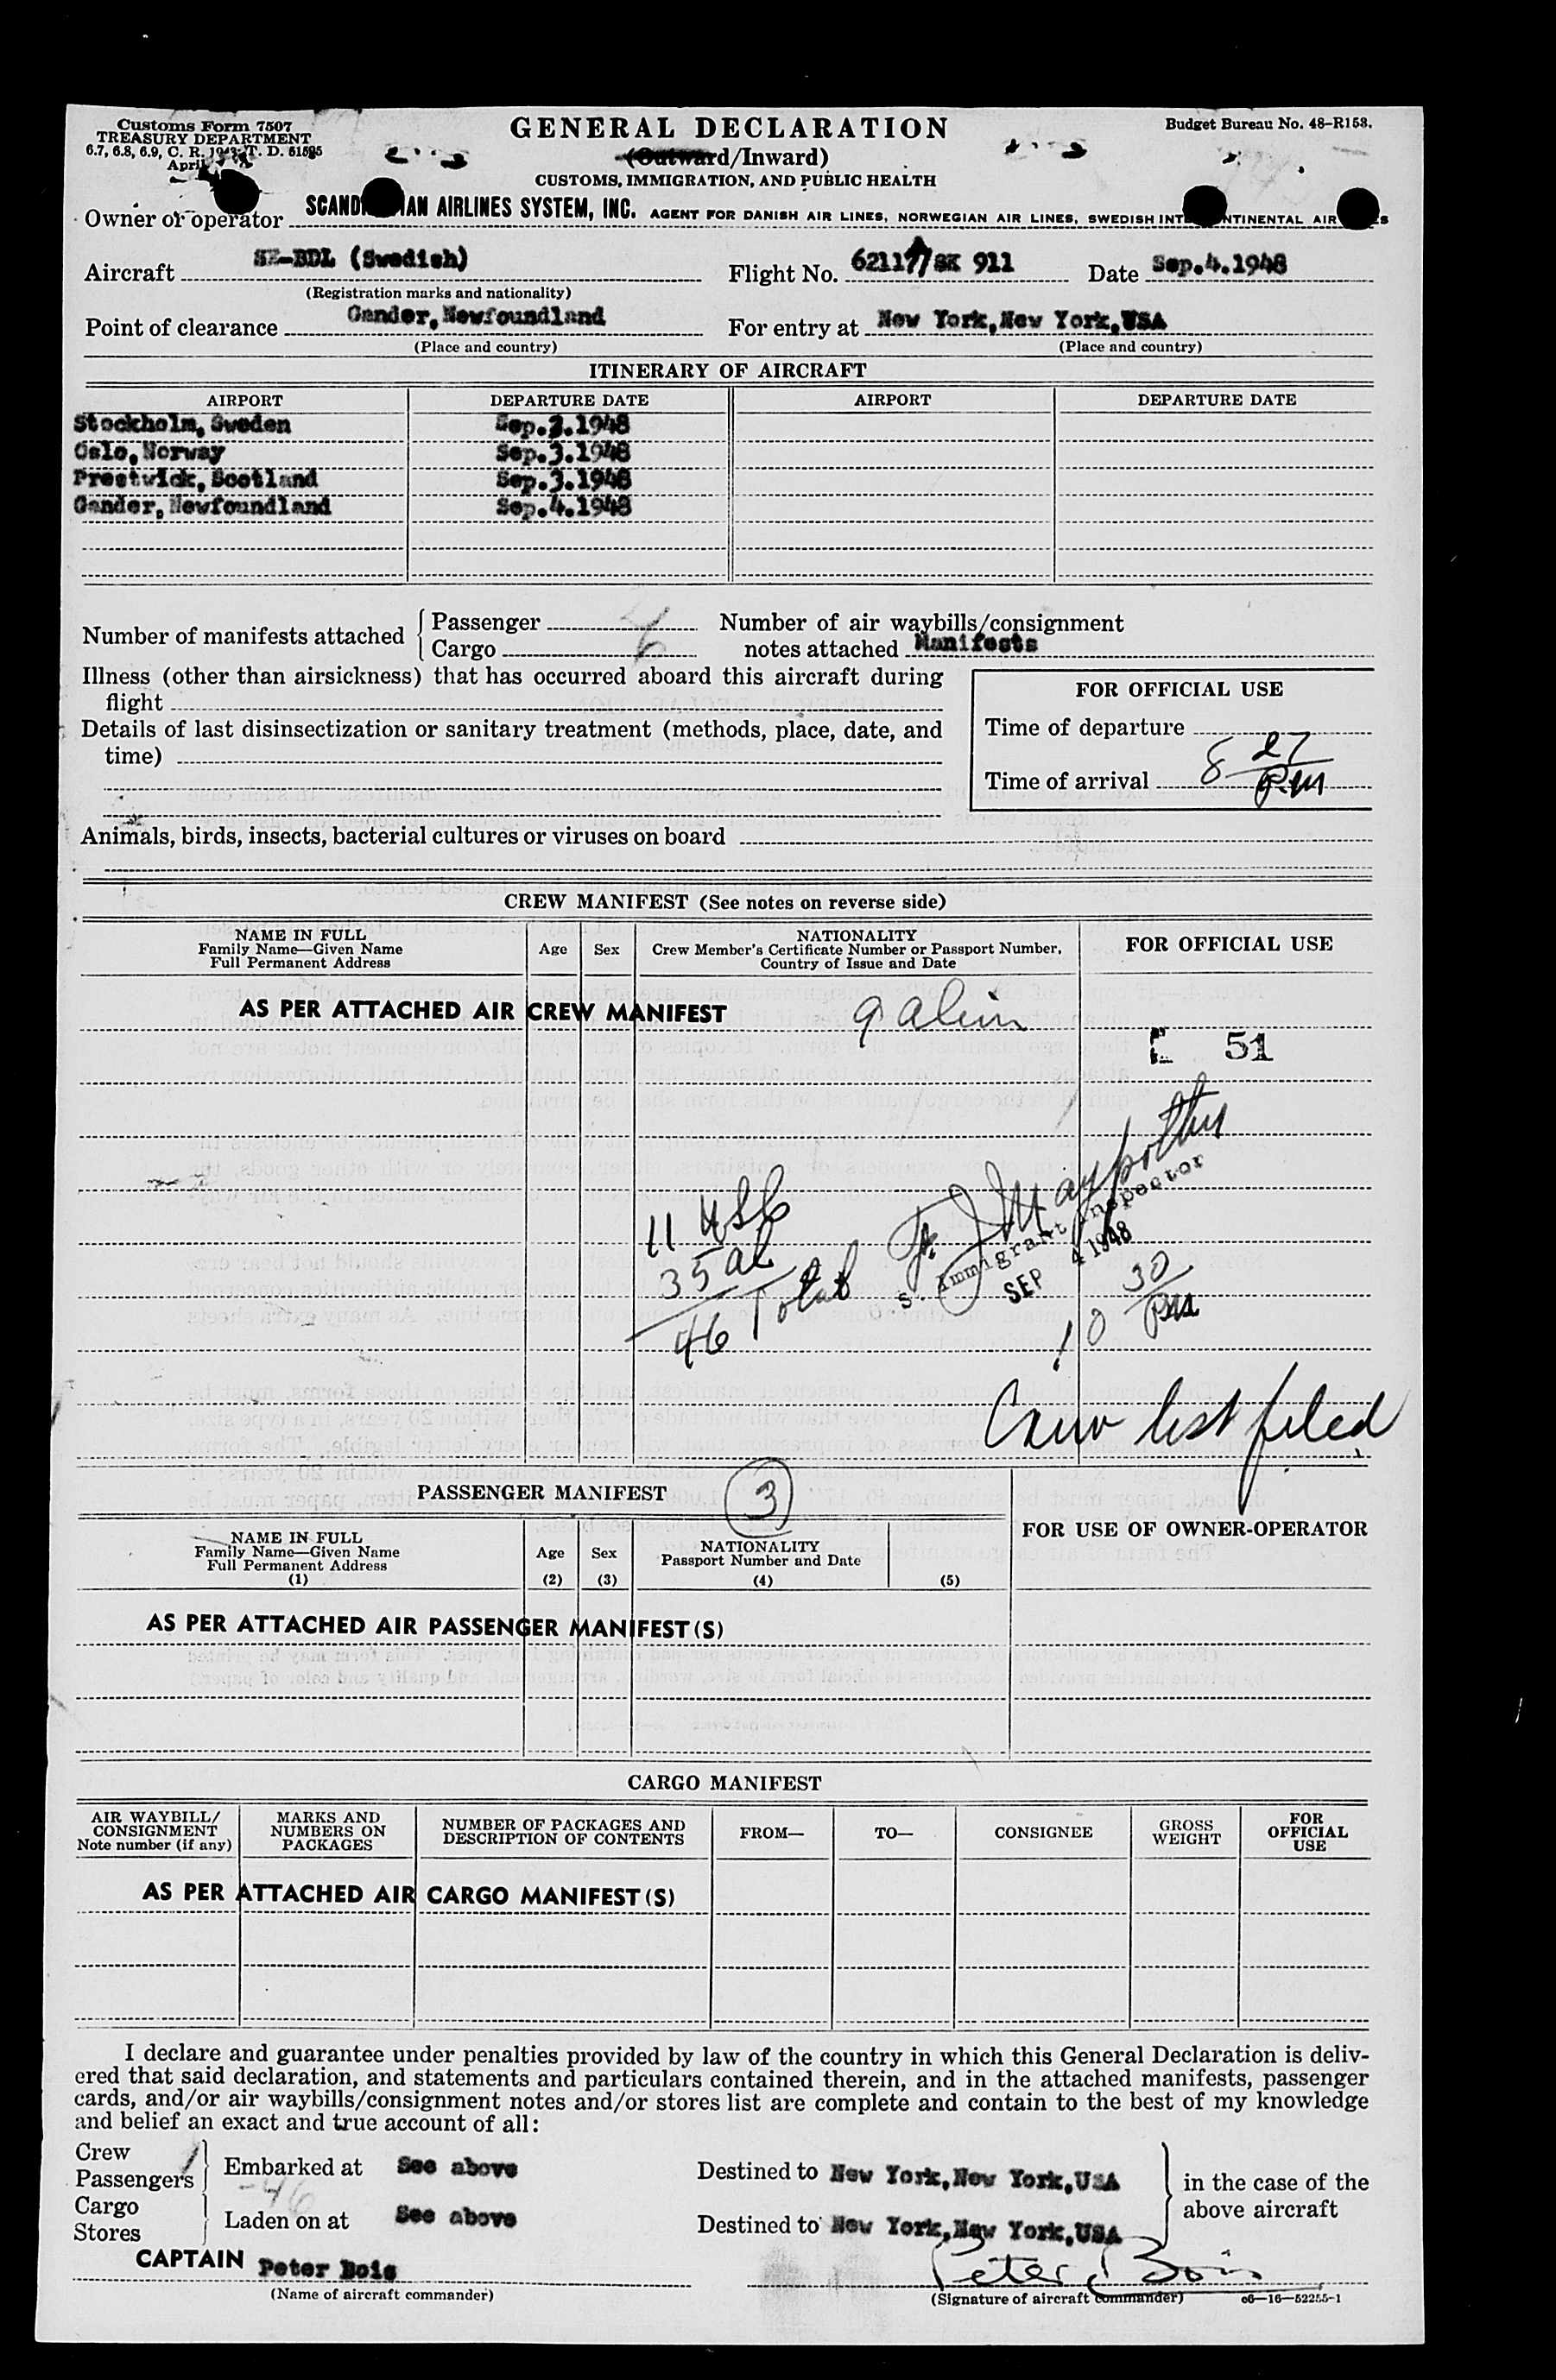 Customs Form 7507
TREASURY DEPARTMENT
6.7, 6.8, 6.9, C. R. 1943; T. D. 51595
April
GENERAL DECLARATION
(Outward/Inward)
CUSTOMS, IMMIGRATION, AND PUBLIC HEALTH
Budget Bureau No. 48-R153.
Owner or operator SCANDINAVIAN AIRLINES SYSTEM, INC. AGENT FOR DANISH AIR LINES, NORWEGIAN AIR LINES, SWEDISH INTERCONTINENTAL AIR LINES
Aircraft SE-BDL (Swedish) Flight No. 62117/SK 911 Date Sep.4.1948
(Registration marks and nationality)
Point of clearance Gander, Newfoundland For entry at New York, New York, USA
(Place and country) (Place and country)
ITINERARY OF AIRCRAFT
AIRPORT DEPARTURE DATE AIRPORT DEPARTURE DATE
Stockholm, Sweden Sep.3.1948
Oslo, Norway Sep.3.1948
Prestwick, Scotland Sep.3.1948
Gander, Newfoundland Sep.4.1948
Number of manifests attached { Passenger
Cargo 6
Number of air waybills/consignment
notes attached Manifests
Illness (other than airsickness) that has occurred aboard this aircraft during
flight
Details of last disinsectization or sanitary treatment (methods, place, date, and
time)
FOR OFFICIAL USE
Time of departure
Time of arrival 8 27 P.m
Animals, birds, insects, bacterial cultures or viruses on board
CREW MANIFEST (See notes on reverse side)
NAME IN FULL
Family Name—Given Name
Full Permanent Address
Age
Sex
NATIONALITY
Crew Member's Certificate Number or Passport Number,
Country of Issue and Date
FOR OFFICIAL USE
AS PER ATTACHED AIR CREW MANIFEST 9 alien
51
11 USC
35 al
46 Total
Immigrant Inspector
SEP 4 1948
10 30 PM
Crew list filed
PASSENGER MANIFEST 3
NAME IN FULL
Family Name—Given Name
Full Permanent Address
(1)
Age
(2)
Sex
(3)
NATIONALITY
Passport Number and Date
(4) (5)
FOR USE OF OWNER-OPERATOR
AS PER ATTACHED AIR PASSENGER MANIFEST(S)
CARGO MANIFEST
AIR WAYBILL/
CONSIGNMENT
Note number (if any)
MARKS AND
NUMBERS ON
PACKAGES
NUMBER OF PACKAGES AND
DESCRIPTION OF CONTENTS
FROM—
TO—
CONSIGNEE
GROSS
WEIGHT
FOR
OFFICIAL
USE
AS PER ATTACHED AIR CARGO MANIFEST(S)
I declare and guarantee under penalties provided by law of the country in which this General Declaration is deliv-
ered that said declaration, and statements and particulars contained therein, and in the attached manifests, passenger
cards, and/or air waybills/consignment notes and/or stores list are complete and contain to the best of my knowledge
and belief an exact and true account of all:
Crew
Passengers } Embarked at See above Destined to New York, New York, USA
46
Cargo
Stores } Laden on at See above Destined to New York, New York, USA
in the case of the
above aircraft
CAPTAIN Peter Bois Peter Bois
(Name of aircraft commander) (Signature of aircraft commander) c6—16—52255-1